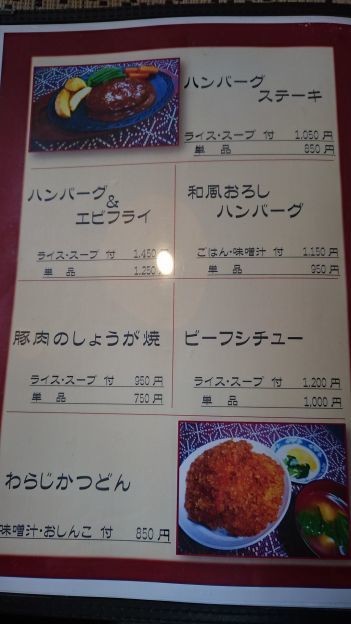 ハンバーグ
ステーキ
ライス・スープ 付 1,050 円
単 品 850 円
ハンバーグ
&
エビフライ
ライス・スープ 付 1,450 円
単 品 1,250 円
和風おろし
ハンバーグ
ごはん・味噌汁 付 1,150 円
単 品 950 円
豚肉のしょうが焼
ライス・スープ 付 950 円
単 品 750 円
ビーフシチュー
ライス・スープ 付 1,200 円
単 品 1,000 円
わらじかつどん
味噌汁・おしんこ 付 850 円